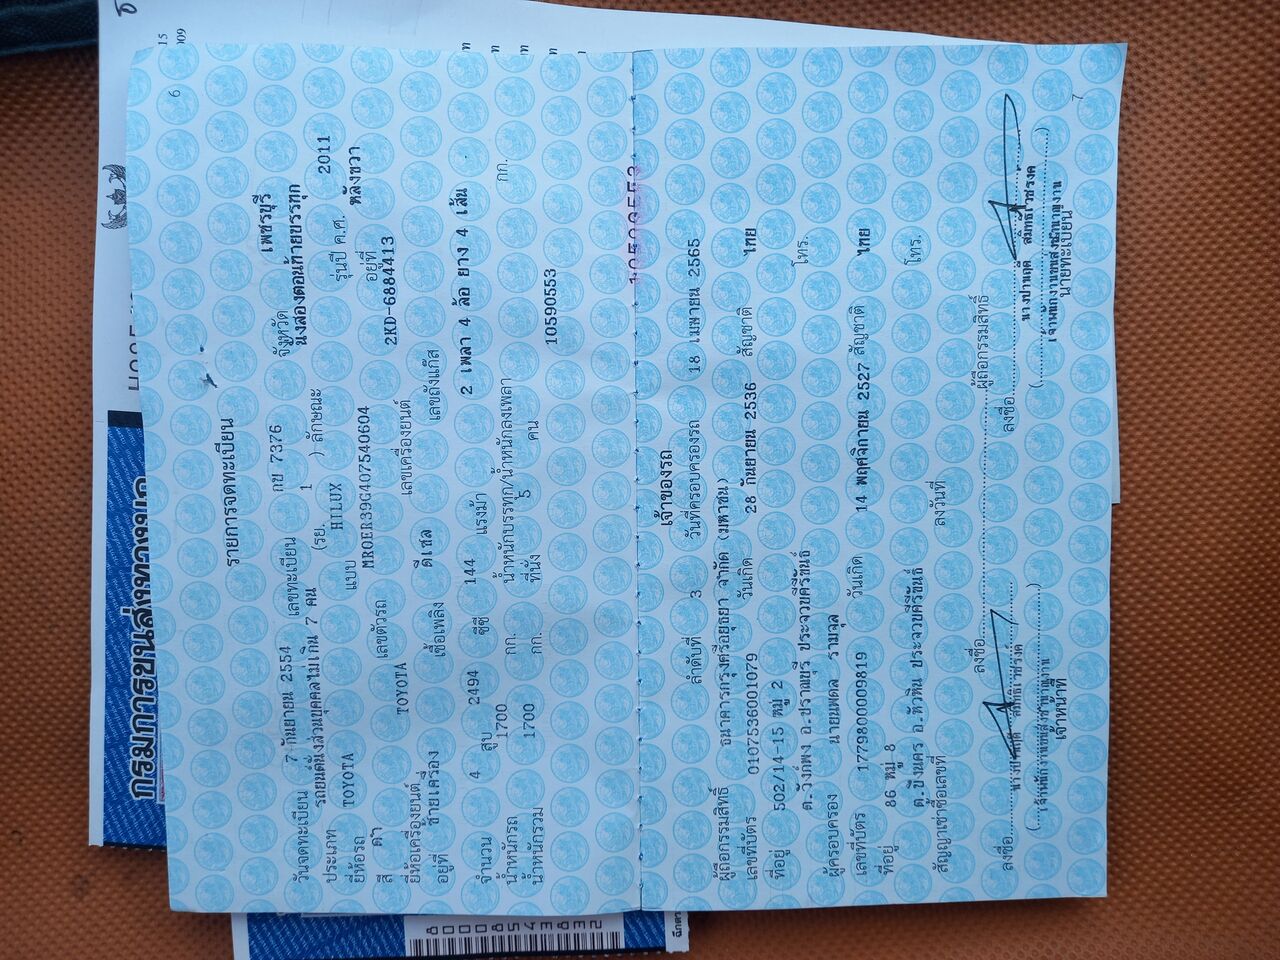 กรมการขนส่งทางบก
6
รายการจดทะเบียน
วันจดทะเบียน 7 กันยายน 2554 เลขทะเบียน กข 7376 จังหวัด เพชรบุรี
ประเภท รถยนต์นั่งส่วนบุคคลไม่เกิน 7 คน (รย. 1 ) ลักษณะ นั่งสองตอนท้ายบรรทุก
ยี่ห้อรถ TOYOTA แบบ HILUX รุ่นปี ค.ศ. 2011
สี ดำ เลขตัวรถ MROER39G407540604 อยู่ที่ หลังขวา
ยี่ห้อเครื่องยนต์ TOYOTA เลขเครื่องยนต์ 2KD-6884413
อยู่ที่ ซ้ายเครื่อง เชื้อเพลิง ดีเซล เลขถังแก๊ส
จำนวน 4 สูบ 2494 ซีซี 144 แรงม้า 2 เพลา 4 ล้อ ยาง 4 เส้น
น้ำหนักรถ 1700 กก. น้ำหนักบรรทุก/น้ำหนักลงเพลา กก.
น้ำหนักรวม 1700 กก. ที่นั่ง 5 คน
10590553
เจ้าของรถ
ลำดับที่ 3 วันที่ครอบครองรถ 18 เมษายน 2565
ผู้ถือกรรมสิทธิ์ ธนาคารกรุงศรีอยุธยา จำกัด (มหาชน)
เลขที่บัตร 0107536001079 วันเกิด 28 กันยายน 2536 สัญชาติ ไทย
ที่อยู่ 502/14-15 หมู่ 2
ต.วังก์พง อ.ปราณบุรี ประจวบคีรีขันธ์ โทร.
ผู้ครอบครอง นายนพดล รามจุล
เลขที่บัตร 1779800009819 วันเกิด 14 พฤศจิกายน 2527 สัญชาติ ไทย
ที่อยู่ 86 หมู่ 8
ต.บึงนคร อ.หัวหิน ประจวบคีรีขันธ์ โทร.
สัญญาเช่าซื้อเลขที่ ลงวันที่
ลงชื่อ ผู้ถือกรรมสิทธิ์
ลงชื่อ ลงชื่อ
เจ้าพนักงานขนส่งชำนาญงาน เจ้าพนักงานขนส่งชำนาญงาน
เจ้าหน้าที่ นายทะเบียน
7